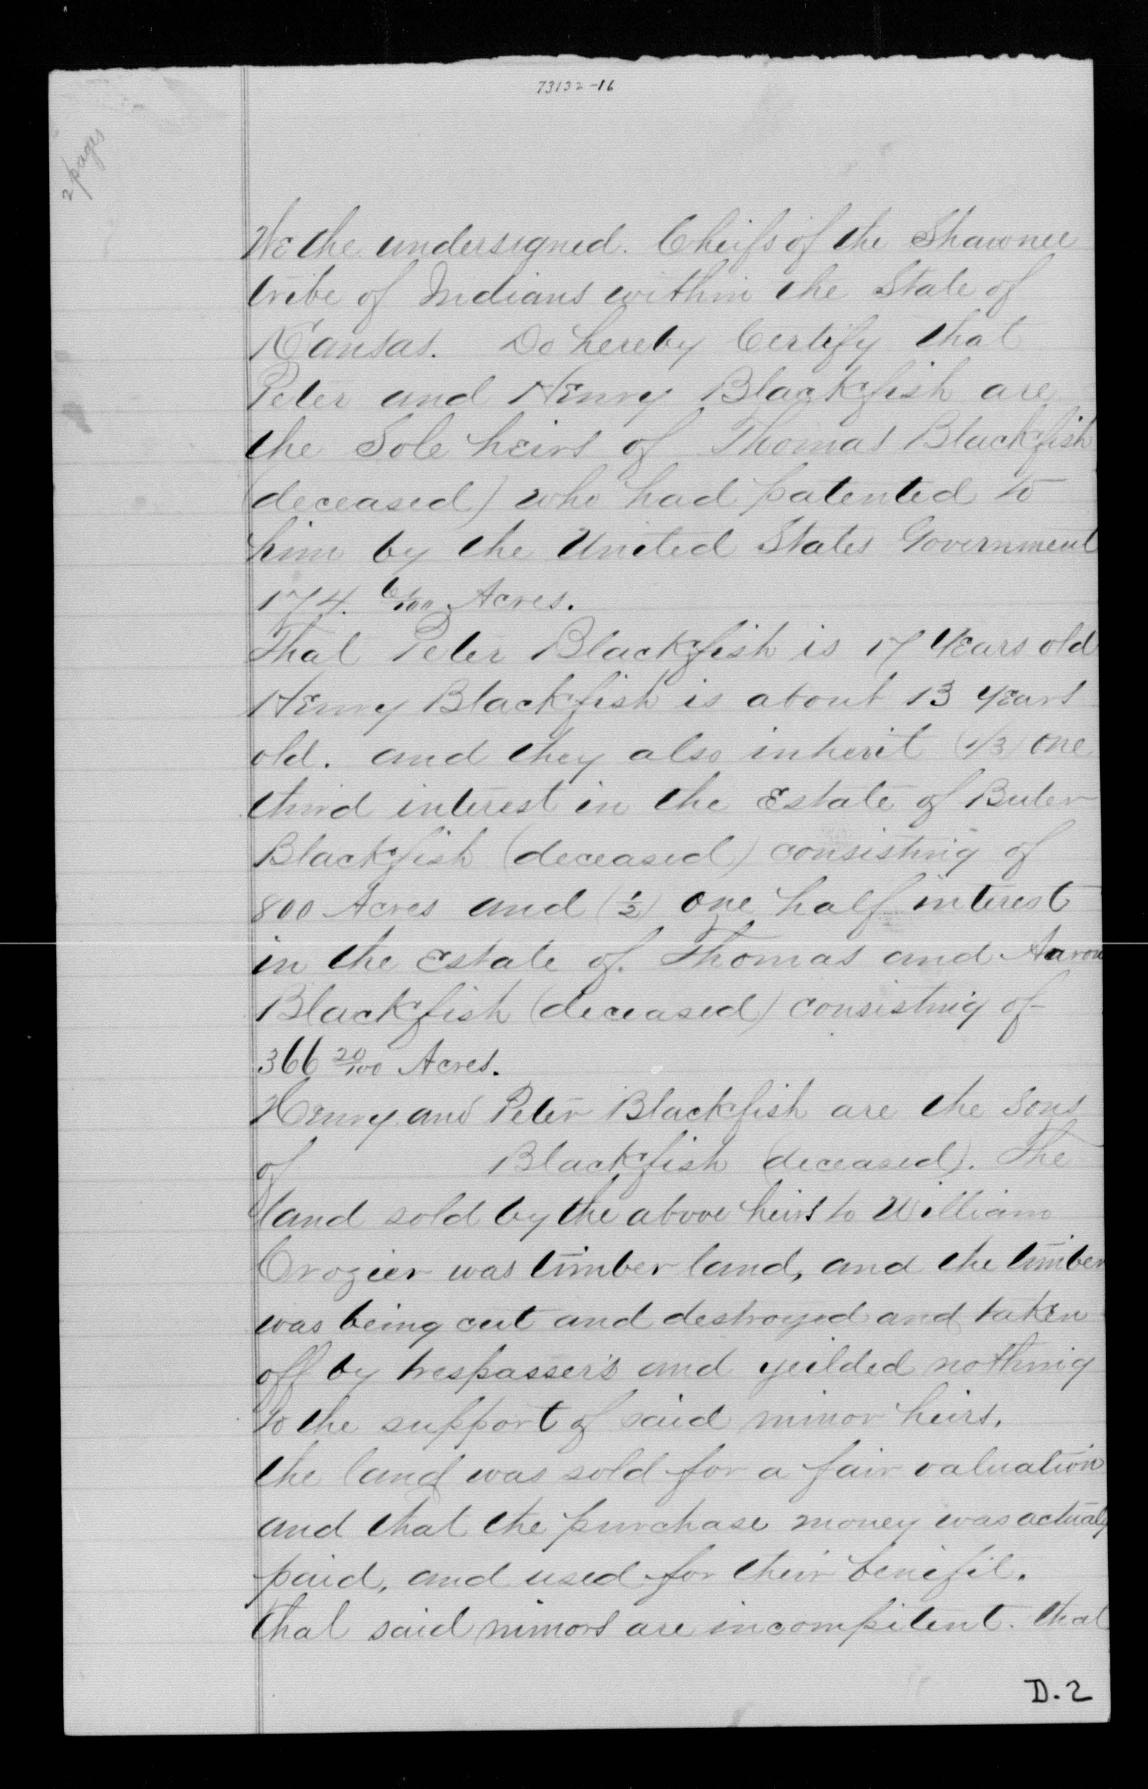 73132-16
2 pages
We the undersigned. Cheifs of the Shawnee
tribe of Indians within the State of
Kansas. Do hereby Certify that
Peter and Henry Blackfish are
the Sole heirs of Thomas Blackfish
(deceased) who had patented to
him by the United States Government
174. /100 Acres.
That Peter Blackfish is 17 Years old
Henry Blackfish is about 13 years
old. and they also inherit (1/3) one
third interest in the Estate of Buler
Blackfish (deceased) consisting of
800 Acres and (1/2) one half interest
in the Estate of. Thomas and Aaron
Blackfish (deceased) consisting of
366 20/100 Acres.
Henry and Peter Blackfish are the Sons
of Blackfish (deceased). The
land sold by the above heirs to William
Crozier was timber land, and the timber
was being cut and destroyed and taken
off by trespassers and yeilded nothing
to the support of said minor heirs.
the land was sold for a fair valuation
and that the purchase money was actualy
paid, and used for their benifit.
that said minors are incompitent. that
D.2